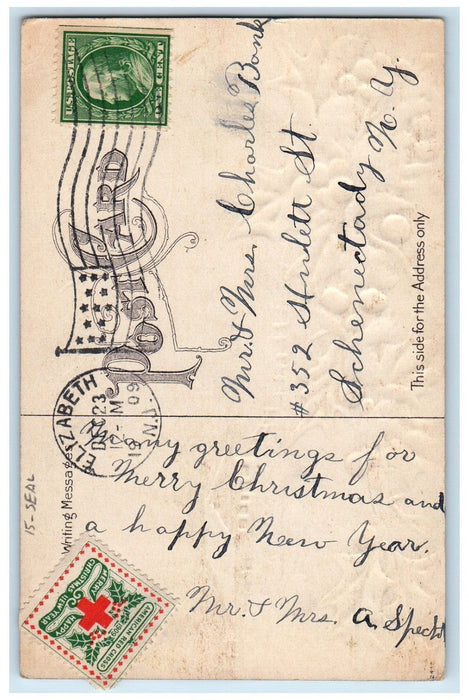 U.S. POSTAGE
ONE CENT
POST CARD
ELIZABETH
DEC 23
12-M
1909
N.J.
Mr. & Mrs. Charles Bank
#352 Hulett St.
Schenectady N. Y.
This side for the Address only
Writing Messages
Many greetings for
Merry Christmas and
a happy New Year.
Mr. & Mrs. A. Specht
15-SEAL
MERRY CHRISTMAS
HAPPY NEW YEAR
AMERICAN RED CROSS
1909